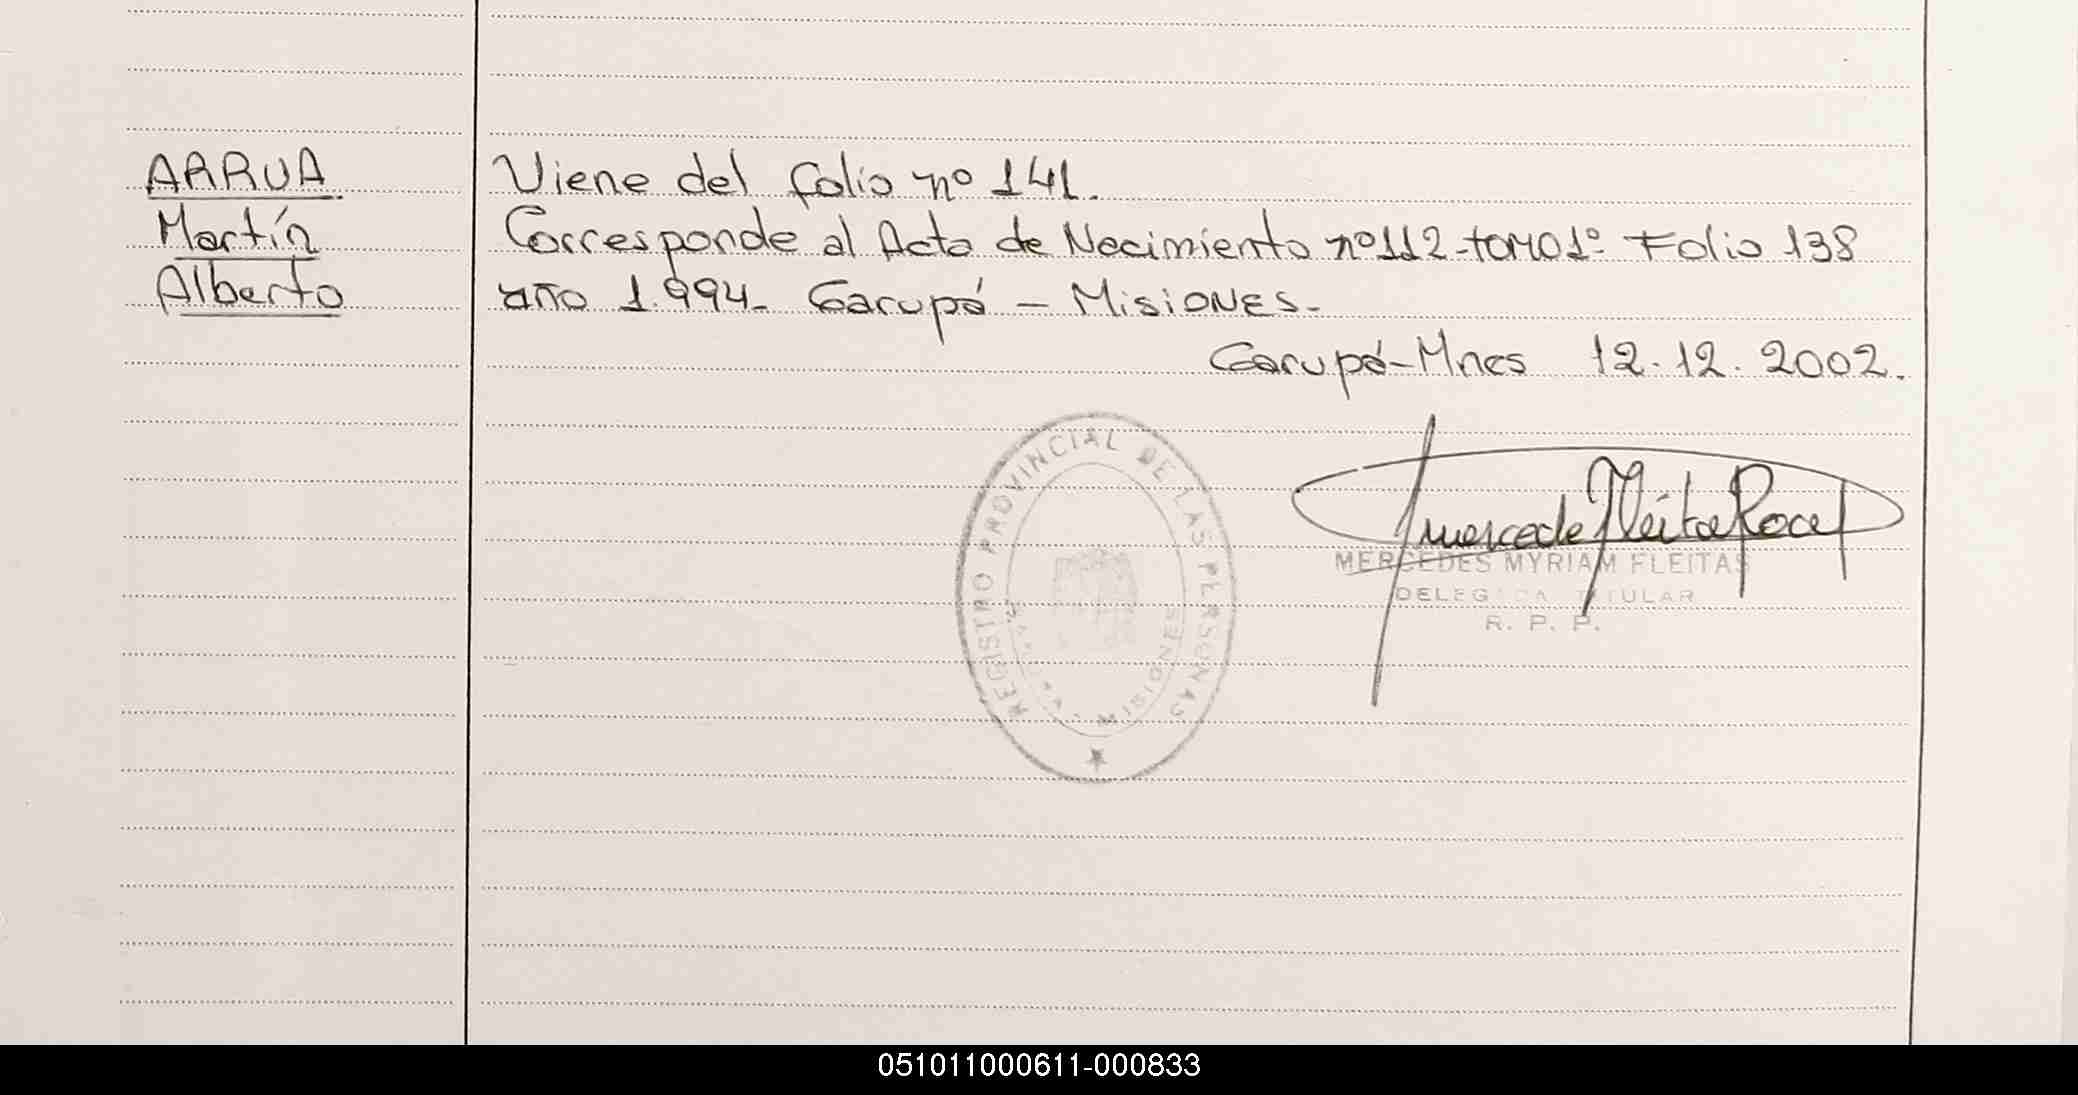 ARRUA
Martín
Alberto
Viene del folio nº 141.
Corresponde al Acta de Nacimiento nº 112-tomo 1º Folio 138
año 1.994- Garupá - Misiones.
Garupá-Mnes 12.12.2002.
REGISTRO PROVINCIAL DE LAS PERSONAS
MISIONES
MERCEDES MYRIAM FLEITAS
DELEGADA TITULAR
R. P. P.
051011000611-000833